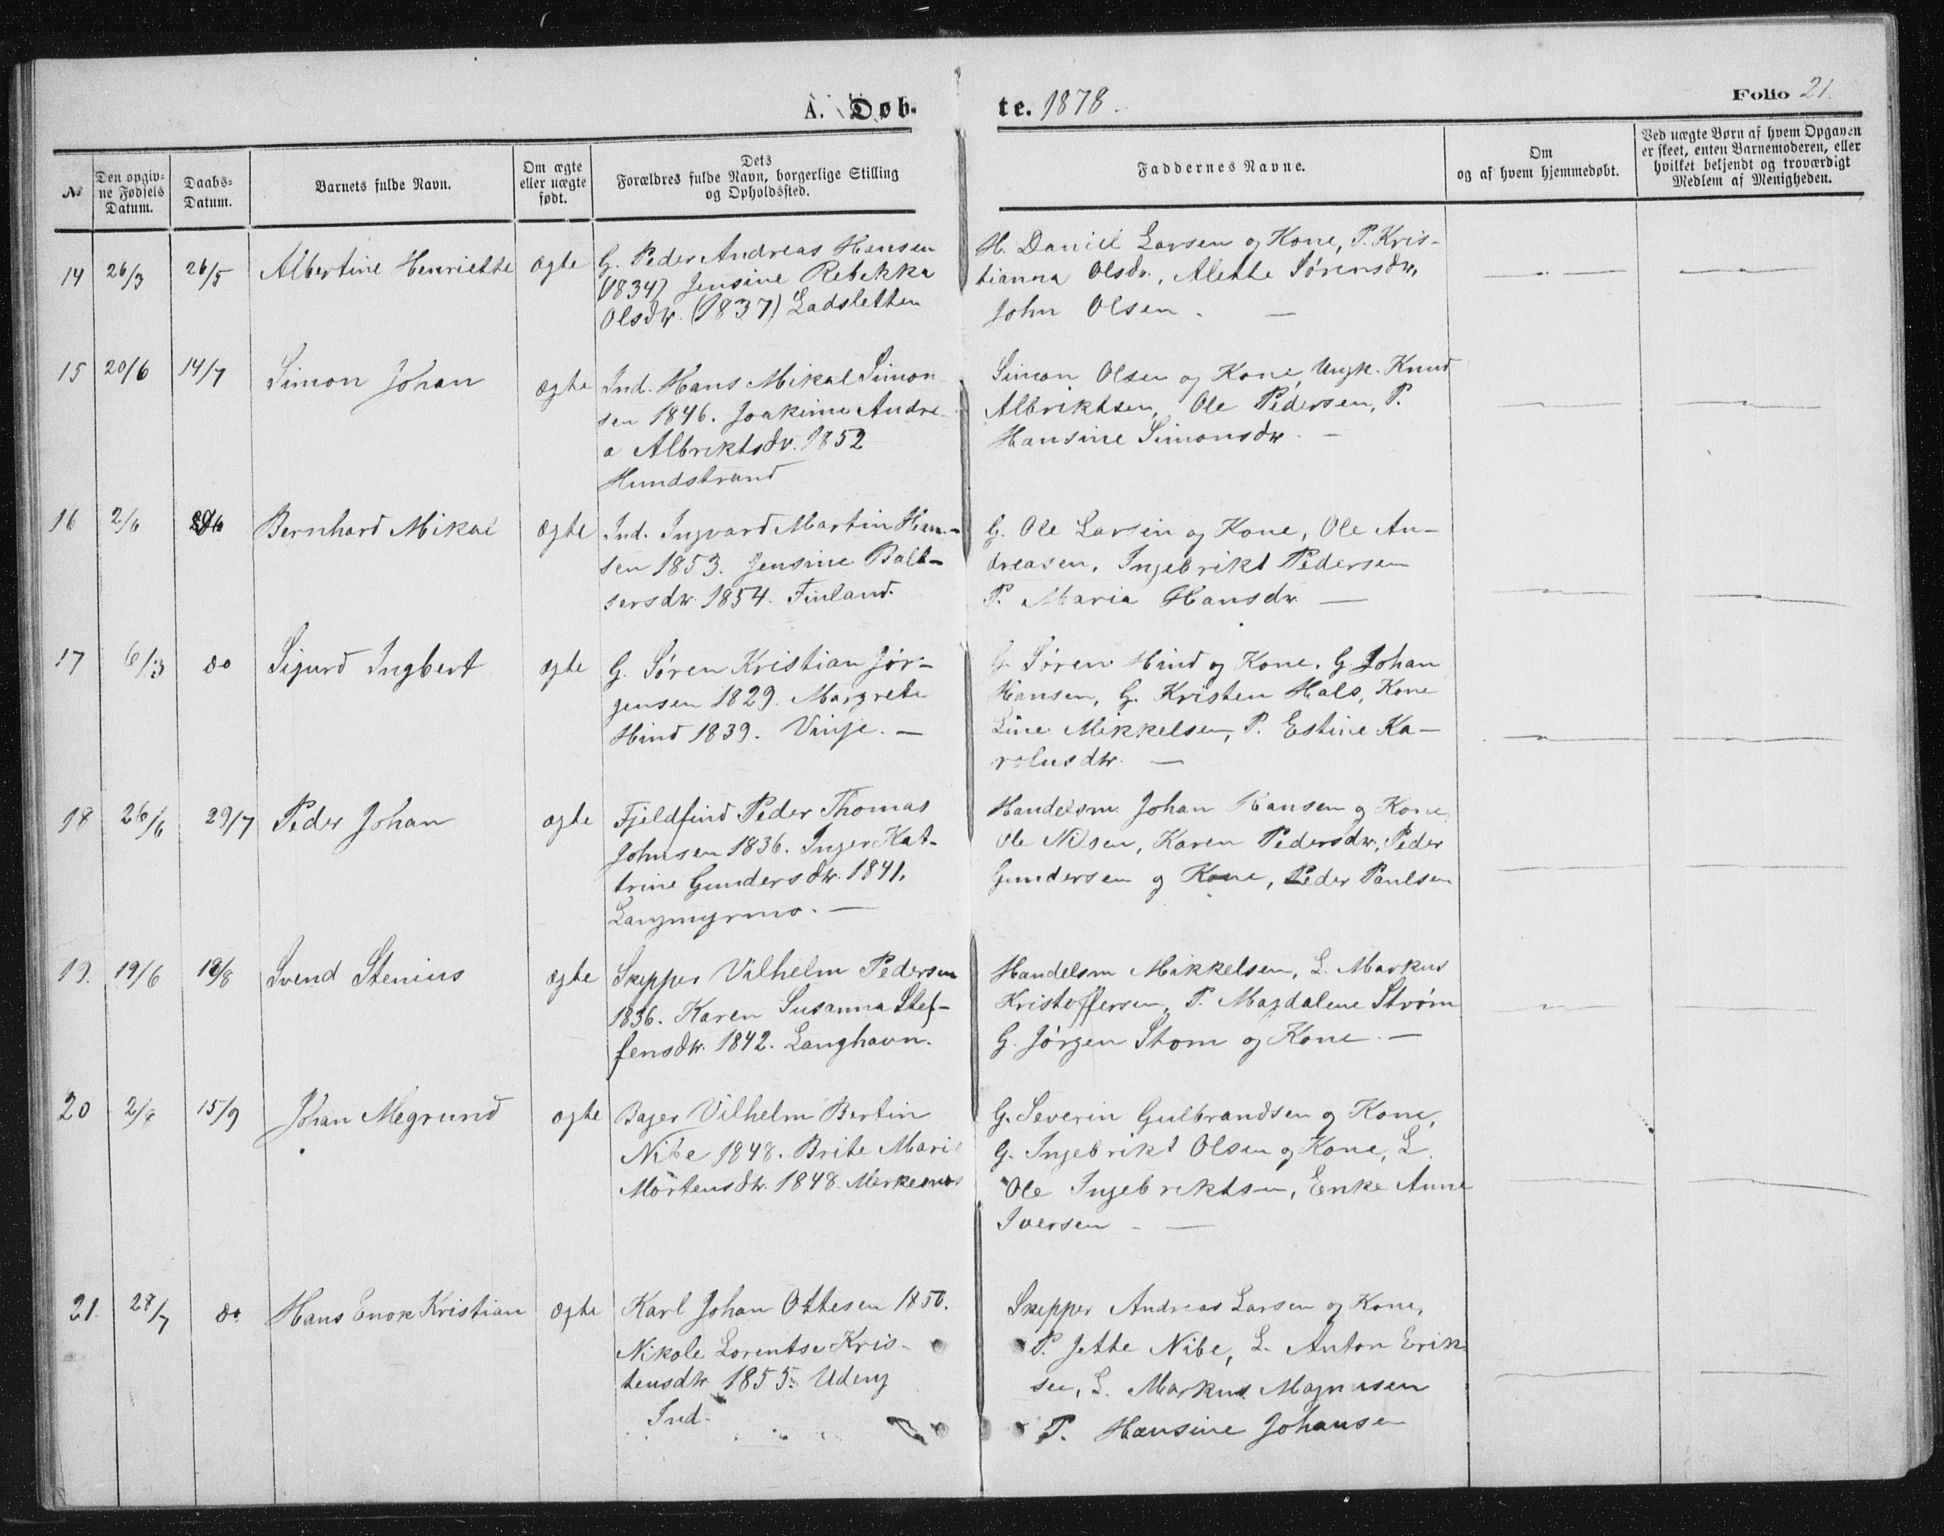 A. Døb-
te. 1878.
Folio 21.
No
Den opgiv-
ne Fødsels
Datum.
Daabs-
Datum.
Barnets fulde Navn.
Om ægte
eller uægte
født.
Dets
Forældres fulde Navn, borgerlige Stilling
og Opholdssted.
Faddernes Navne.
Om
og af hvem hjemmedøbt.
Ved uægte Børn af hvem Opgaven
er skeet, enten Barnemoderen, eller
hvilket beljendt og troværdigt
Medlem af Menigheden.
14 26/3 26/5 Albertine Henriette ægte
G. Peder Andreas Hansen
(1834) Jensine Rebekka
Olsdtr. (1837) Ladsletten
H. Daniel Larsen og Kone, P. Kris-
tianna Olsdtr., Alette Sørensdtr,
John Olsen. —
15 20/6 14/7 Simon Johan ægte
Ind. Hans Mikal Simon
sen 1846. Joakime Andre-
a Albriktsdtr. 1852
Hundstrand
Simon Olsen og Kone, Ungk. Knud
Albriktsen, Ole Pedersen, P.
Hansine Simonsdtr. —
16 2/6 Bernhard Mikal ægte
Ind. Ingvard Martin Han-
sen 1853. Jensine Balt-
sersdtr. 1854. Finland.
G. Ole Larsen og Kone, Ole An-
dreasen, Ingebrikt Pedersen
P. Maria Hansdtr —
17 6/3 do Sigurd Ingbert ægte
G. Søren Kristian Jør-
gensen 1829. Margrete
Hind 1839. Vinje. —
G. Søren Hind og Kone, G. Johan
Hansen, G. Kristen Hals, Kone
Line Mikkelsen, P. Estine Ka-
rolusdtr. —
18 26/6 29/7 Peder Johan ægte
Fjeldfind Peder Thomas
Johnsen 1836. Inger Kat-
trine Gundersdtr. 1841.
Langmyrmo. —
Handelsm. Johan Hansen og Kone,
Ole Nilsen, Karen Pedersdtr, Peder
Gundersen og Kone, Peder Paulsen
19. 19/6 18/8 Svend Stenius ægte
Skipper Vilhelm Pedersen
1836. Karen Susanna Stef-
fensdtr. 1842. Langhavn.
Handelsm Mikkelsen, L. Markus
Kristoffersen, P. Magdalene Strøm
G. Jørgen Strom og Kone. —
20 2/8 15/9 Johan Megrund ægte
Bager Vilhelm Bertin
Nibe 1848. Brite Marie
Mortensdtr. 1848.
G. Severin Gulbrandsen og Kone,
G. Ingebrikt Olsen og Kone, L.
Ole Ingebriktsen, Enke Anne
Iversen —
21. 28/7 do. Hans Enok Kristian ægte
Karl Johan Ottesen 1850.
Nikole Lorentse Kris-
tensdtr 1855.
Ind.
Skipper Andreas Larsen og Kone,
P. Jette Nibe, L. Anton Erik
sen, L. Markus Magnusen
P. Hansine Johansen